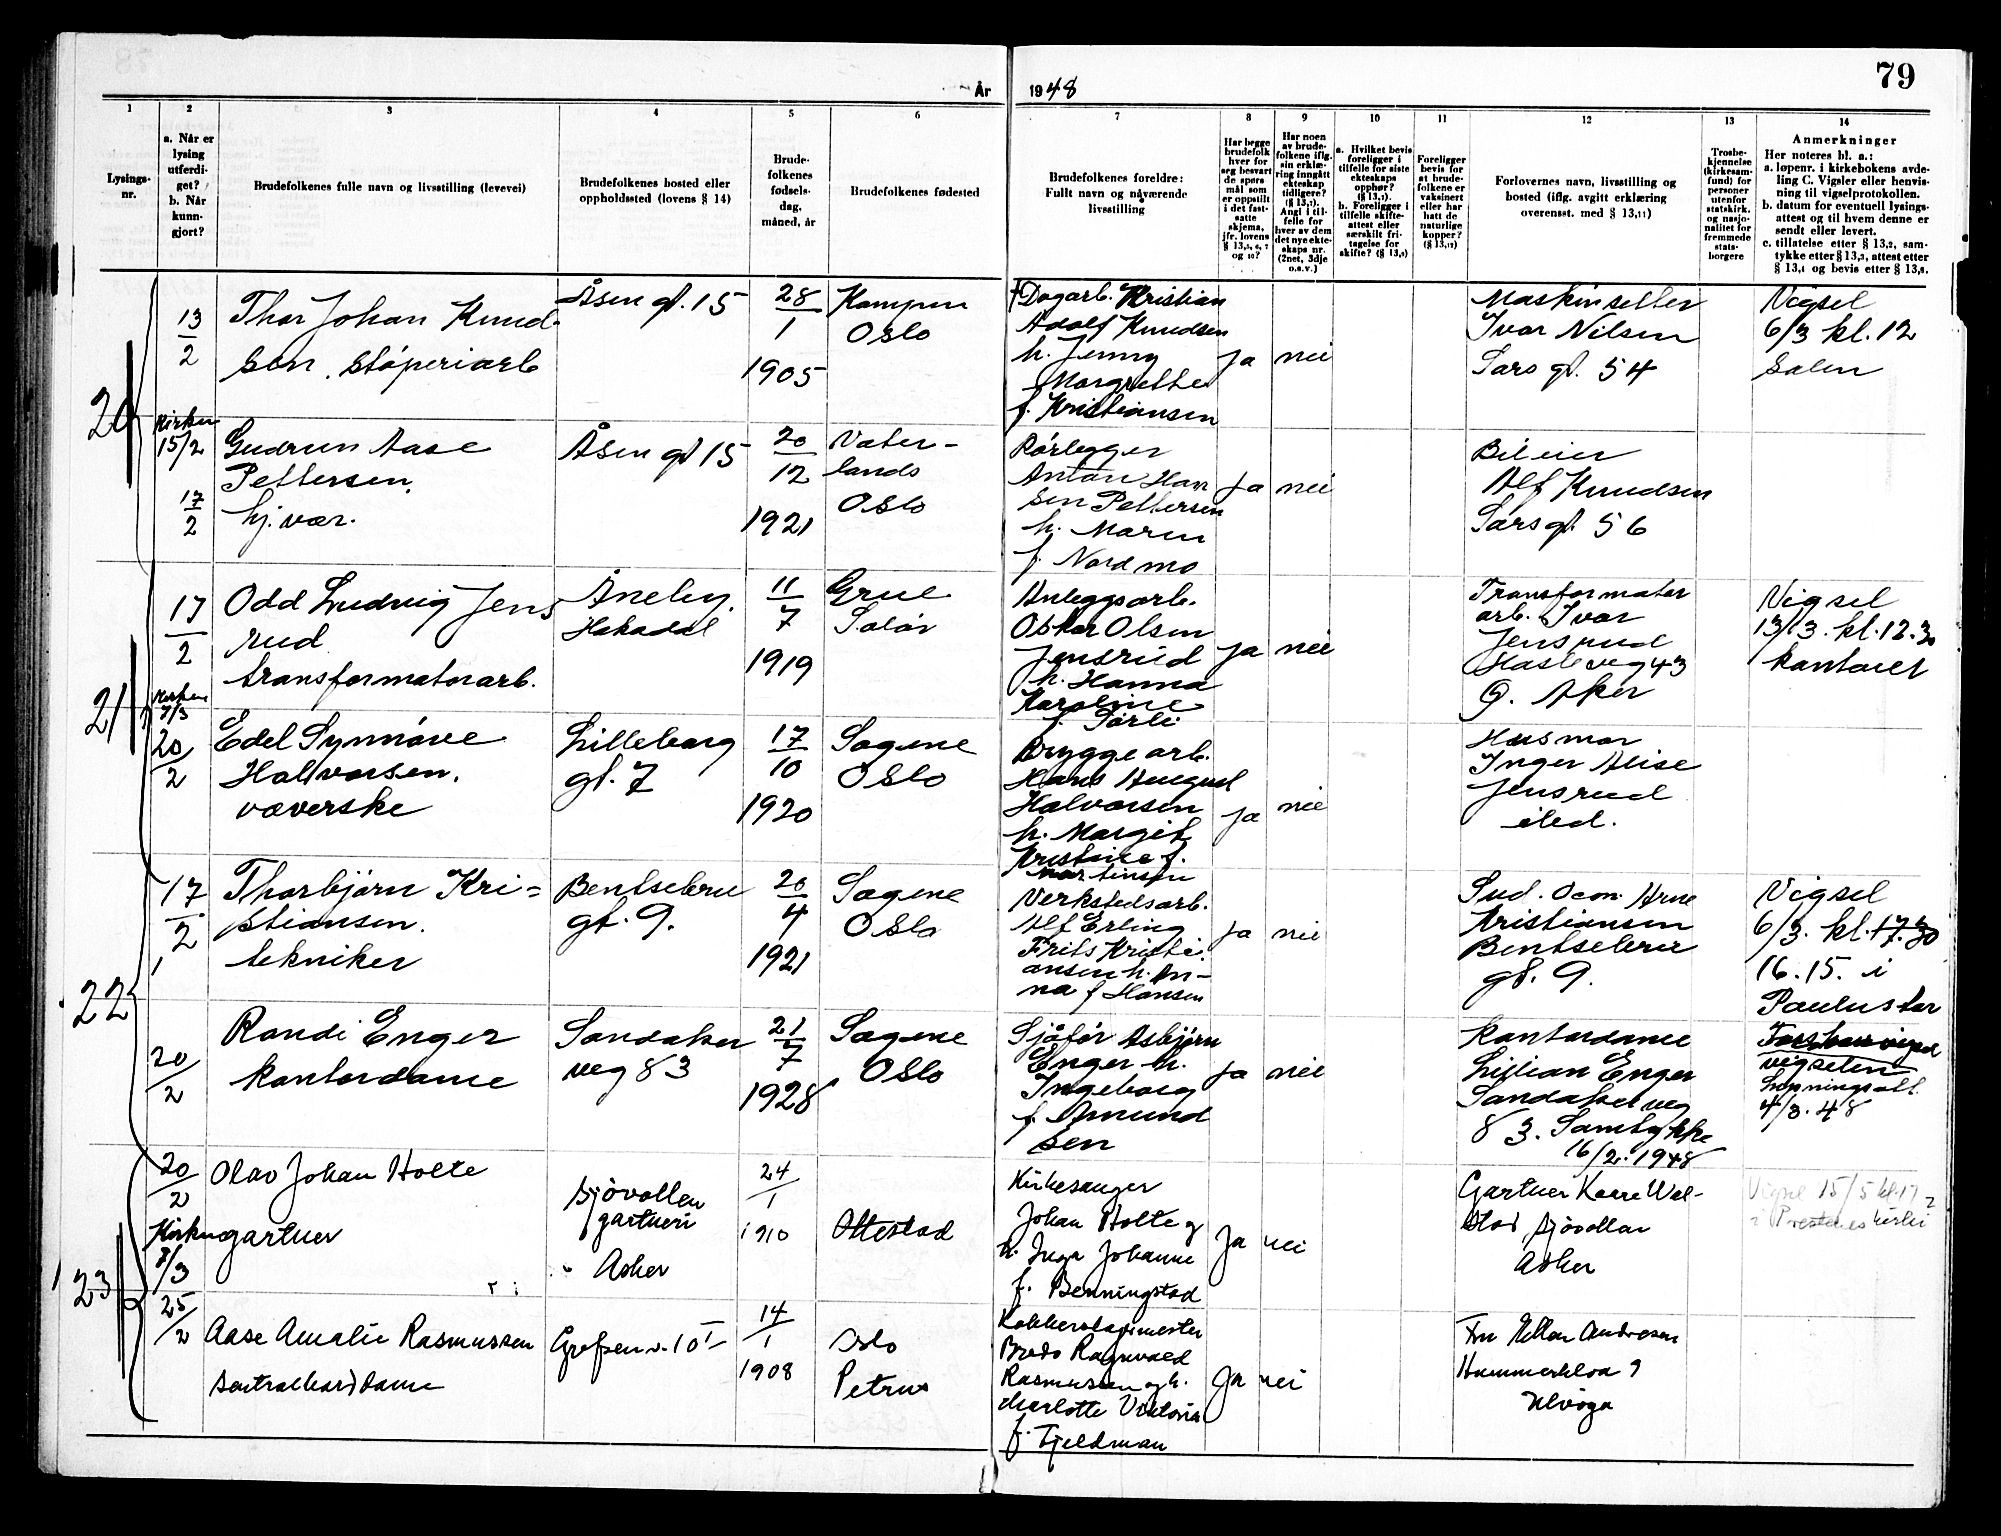 79
År
1948
1
2
3
4
5
6
7
8
9
10
11
12
13
14
Lysings-
nr.
a. Når er
lysing
utferdi-
get?
b. Når
kunn-
gjort?
Brudefolkenes fulle navn og livsstilling (levevei)
Brudefolkenes bosted eller
oppholdssted (lovens § 14)
Brude-
folkenes
fødsels-
dag,
måned, år
Brudefolkenes fødested
Brudefolkenes foreldre:
Fullt navn og nåværende
livsstilling
Har begge
brudefolk
hver for
seg besvart
de spørs-
mål som
er oppstilt
i det fast-
satte
skjema,
jfr. lovens
§ 13,5, 6, 7
og 10?
Har noen
av brude-
folkene iflg.
sin erklæ-
ring inngått
ekteskap
tidligere?
(§ 13,7).
Angi i til-
felle for
hver av dem
det nye ekte-
skaps nr.
(2net, 3dje
o.s.v.)
a. Hvilket bevis
foreligger i
tilfelle for siste
ekteskaps
opphør?
(§ 13,7).
b. Foreligger i
tilfelle skifte-
attest eller
særskilt fri-
tagelse for
skifte? (§ 13,8)
Foreligger
bevis for
at brude-
folkene er
vaksinert
eller har
hatt de
naturlige
kopper?
(§ 13,12)
Forlovernes navn, livsstilling og
bosted (iflg. avgitt erklæring
overensst. med § 13,11)
Trosbe-
kjennelse
(kirkesam-
fund) for
personer
utenfor
statskirk.
og nasjo-
nalitet for
fremmede
stats-
borgere
Anmerkninger
Her noteres bl. a.:
a. løpenr. i kirkebokens avde-
ling C. Vigsler eller henvis-
ning til vigselprotokollen.
b. datum for eventuell lysings-
attest og til hvem denne er
sendt eller levert.
c. tillatelse etter § 13,2, sam-
tykke etter § 13,3, attest etter
§ 13,4 og bevis etter § 13,8.
20
13/2
Thor Johan Knud-
sen. støperiarb
Åsen gt. 15
28/1
1905
Kampen
Oslo
† Dagarb. Kristian
Adolf Knudsen
h. Jenny
Margrethe
f. Kristiansen
ja
nei
Maskinsetter
Ivar Nilsen
Sars gt. 54
Vigsel
6/3 kl. 12
Salen
Kirken
15/2
17/2
Gudrun Aase
Pettersen.
hj. vær.
Åsen gt 15
20/12
1921
Vater-
lands
Oslo
Rørlegger
Anton Han
sen Pettersen
h. Maren
f. Nordmo
ja
nei
Bileier
Alf Knudsen
Sars gt. 56
21
17/2
Odd Ludvig Jens
rud
transformatorarb.
Åneby.
Hakadal
11/7
1919
Grue
Solør
Anleggsarb.
Oskar Olsen
Jensrud
h. Hanna
Karoline
f. Sørli
ja
nei
Transformator
arb. Ivar
Jensrud
Hasleveg 43
Ø. Aker
Vigsel
13/3. kl. 12.30
kontoret
Kirken
7/3
20/2
Edel Synnøve
Halvorsen.
væverske
Lilleborg
gt. 7
17/10
1920
Sagene
Oslo
Bryggearb.
Hans August
Halvorsen
h. Margit
Kristine f.
Martinsen
ja
nei
Husmor
Inger Alise
Jensrud
sted.
22
17/2
Thorbjørn Kri=
stiansen.
tekniker
Bentsebru
gt. 9.
20/4
1921
Sagene
Oslo
Verkstedsarb.
Alf Erling
Frits Kristi
ansen h. An-
na f Hansen
ja
nei
Stud. Oecon Arne
Kristiansen
Bentsebru
gt. 9.
Vigsel
6/3. kl. 17.30
16.15. i
Paulus kor
20/2
Randi Enger
kontordame
Sandaker
veg 83
21/7
1928
Sagene
Oslo
Sjåfør Asbjørn
Enger h.
Ingeborg
f. Amund
sen
ja
nei
Kontordame
Lillian Enger
Sandakerveg
83. Samtykke
16/2. 1948
vigselen
4/3. 48
23
20/2
Kirken
7/3
Olav Johan Holte
gartner
Sjøvollen
gartneri
Asker
24/1
1910
Ottestad
Kirkesanger
Johan Holte og
h. Inga Johanne
f. Benningstad
Ja
nei
Gartner Kaare Wol-
stad Sjøvollen
Asker
Vigsel 15/5 kl. 17
i Prestenes kirke
25/2
Aase Amalie Rasmussen
Sentralborddame
Grefsenv. 10 I
14/1
1908
Oslo
Petrus
Kobberslagermester
Bredo Ragnvald
Rasmussen og h.
Charlotte Viktoria
f. Tjeldman
Ja
nei
Fru Ellen Andresen
Hammerkloa 9
Ulvøya